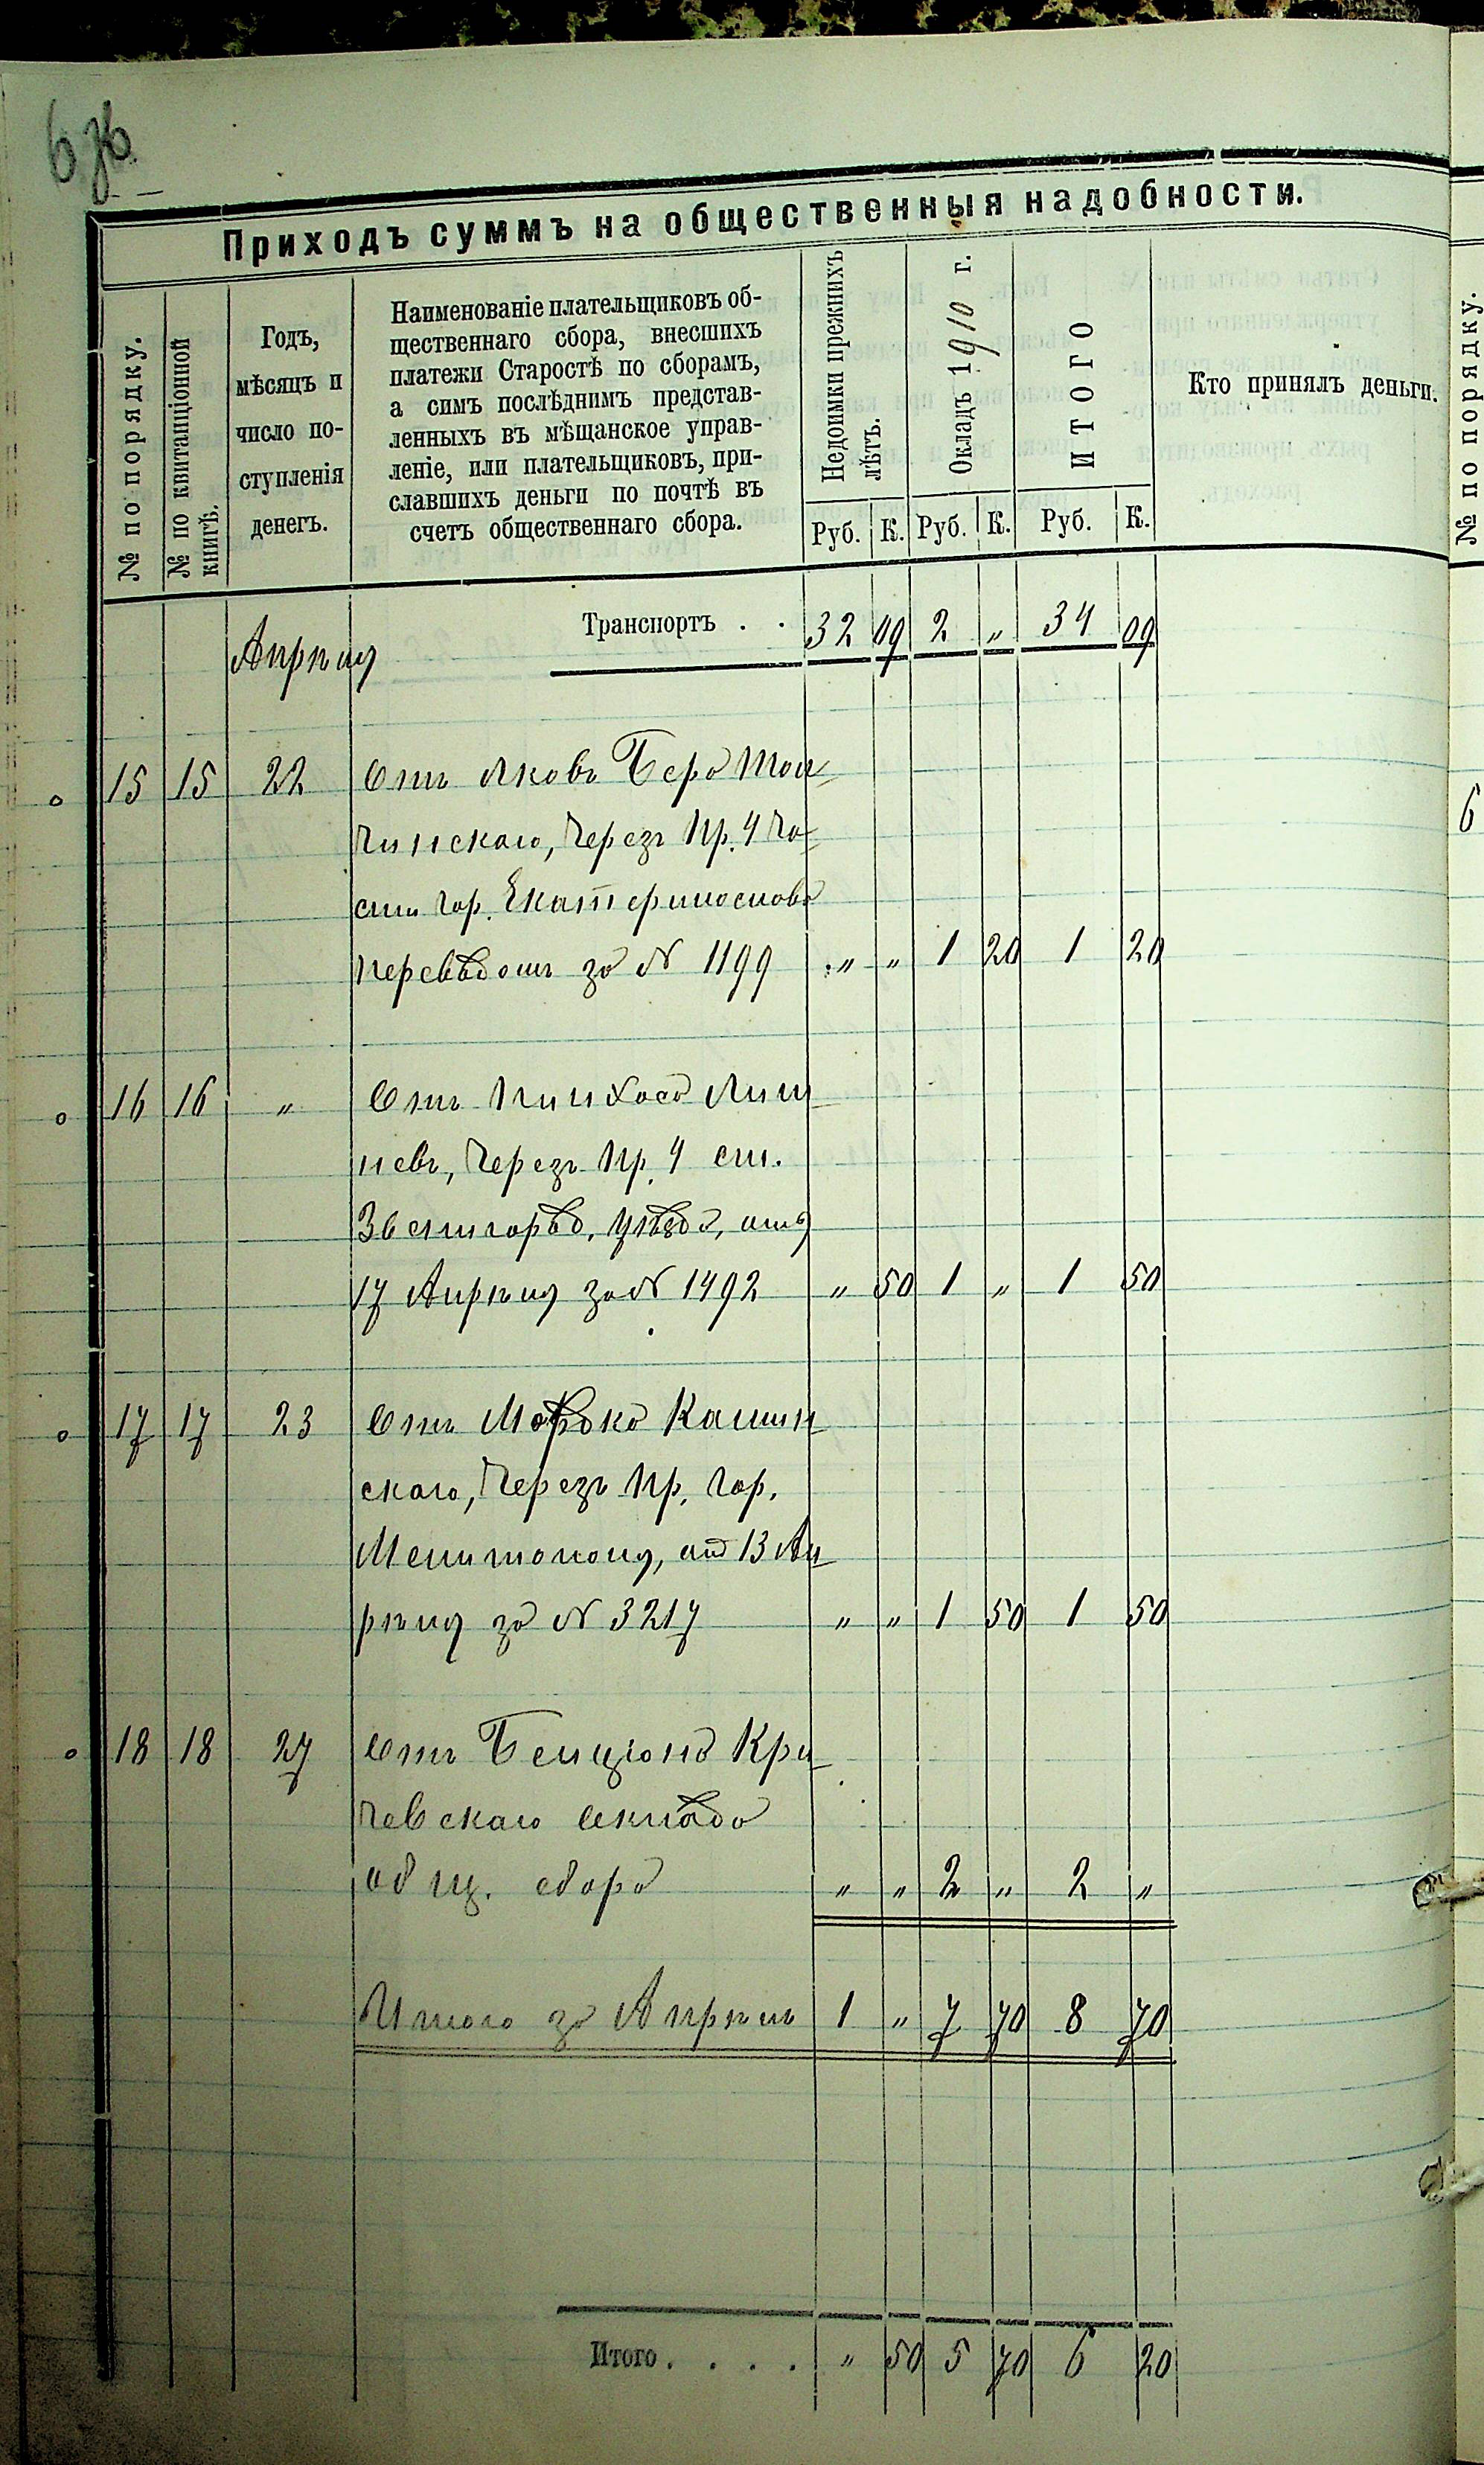 6 об.
Приходъ суммъ на общественныя надобности.
№ по порядку.
№ по квитанціонной книгѣ.
Годъ, мѣсяцъ и число поступленія денегъ.
Наименованіе плательщиковъ об-
щественнаго сбора, внесшихъ
платежи Старостѣ по сборамъ,
а симъ послѣднимъ представ-
ленныхъ въ мѣщанское управ-
леніе, или плательщиковъ, при-
славшихъ деньги по почтѣ въ
счетъ общественнаго сбора.
Недоимки прежнихъ лѣтъ.
Окладъ 1910 г.
ИТОГО
Кто принялъ деньги.
Руб. К. Руб. К. Руб. К.
Апрѣля Транспортъ . . 32 09 2 „ 34 09
15 15 22 Отъ Яковъ Бера
чинскаго, Через Пр. 4 ча
сти гор. Екатеринослова
перевѣдомъ за № 1199 „ „ 1 20 1 20
16 16 „ Отъ Пинхоса Лиш
невъ, Черезъ Пр. 4 ст.
Звенигород. уѣзда, отъ
17 Апрѣля за № 1492 „ 50 1 „ 1 50
17 17 23 Отъ Мордко Камин
скаго, Черезъ Пр. гор.
Мелитополя, отъ 13 Ап
рѣля за № 3217 „ „ 1 50 1 50
18 18 27 Отъ Бенціона Кри
чевскаго оклада
общ. сбора „ „ 2 „ 2 „
Итого за Апрѣль 1 „ 7 70 8 70
Итого . . . . „ 50 5 70 6 20
№ по порядку.
6